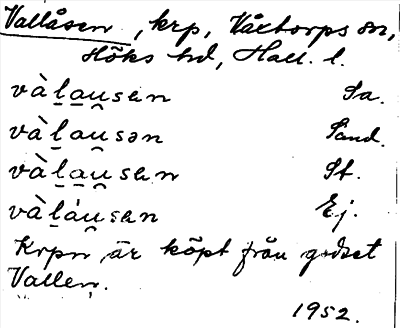 Vallåsen, krp, Våxtorps sn,
Höks hd, Hall. l.
vàl̠a̠u̯sen Sa.
vàl̠a̠u̯sən Sand.
vàl̠a̠u̯sen St.
vàl̠áu̯sen Ej.
Krpn är köpt från godset
Vallen.
1952.